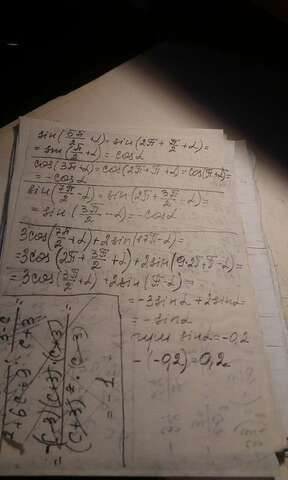 sin(5π/2+α)=sin(2π+π/2+α)=
=sin(π/2+α)=cosα
cos(3π+α)=cos(2π+π+α)=cos(π+α)=
=-cosα
sin(7π/2-α)=sin(2π+3π/2-α)=
=sin(3π/2-α)=-cosα
3cos(7π/2+α)+2sin(17π-α)=
=3cos(2π+3π/2+α)+2sin(
=3cos(3π/2+α)+2sin(π-α)=
=-3sinα+2sinα=
=-sinα
при sinα=-0,2
-(-0,2)=0,2
3-c
c+3
=-1